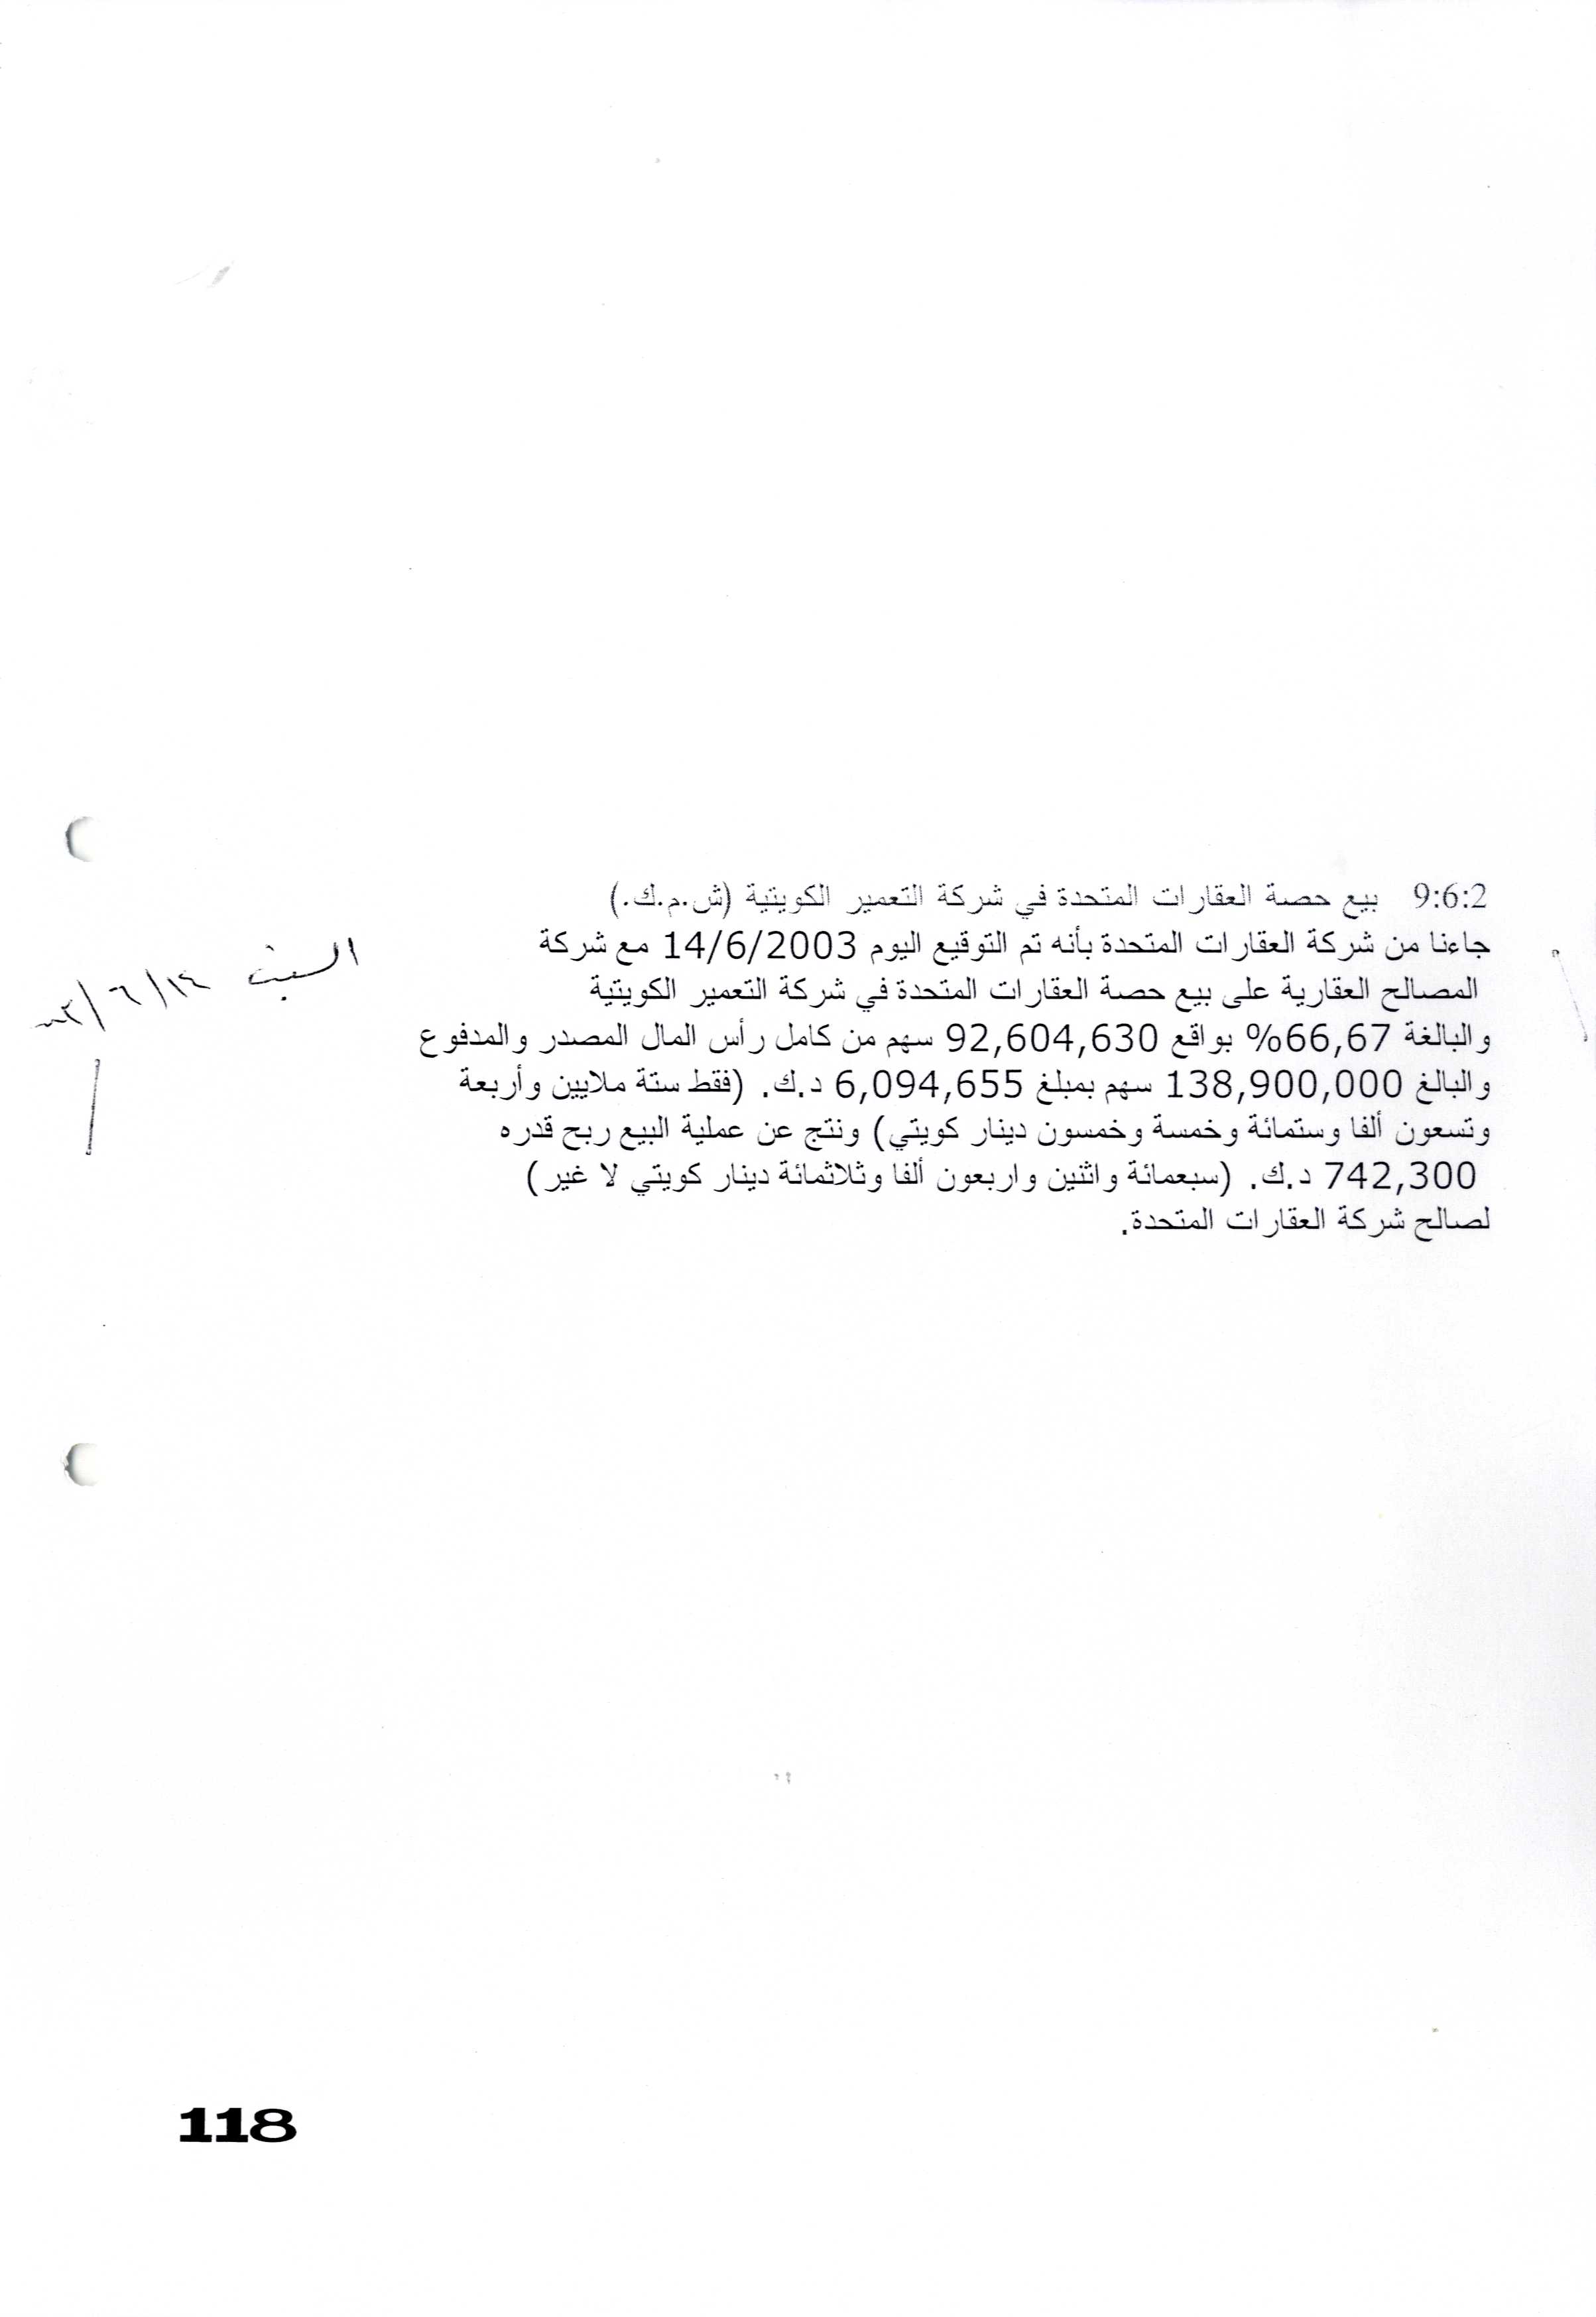 9:6:2 بيع حصة العقارات المتحدة في شركة التعمير الكويتية (ش.م.ك.)
جاءنا من شركة العقارات المتحدة بأنه تم التوقيع اليوم 14/6/2003 مع شركة
المصالح العقارية على بيع حصة العقارات المتحدة في شركة التعمير الكويتية
والبالغة 66,67% بواقع 92,604,630 سهم من كامل رأس المال المصدر والمدفوع
والبالغ 138,900,000 سهم بمبلغ 6,094,655 د.ك. (فقط ستة ملايين وأربعة
وتسعون ألفا وستمائة وخمسة وخمسون دينار كويتي) ونتج عن عملية البيع ربح قدره
742,300 د.ك. (سبعمائة واثنين واربعون ألفا وثلاثمائة دينار كويتي لا غير)
لصالح شركة العقارات المتحدة.
السبت ١٤/٦/
118